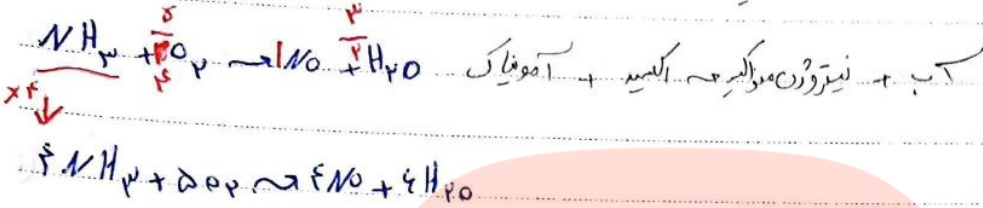 NH۳ + ۵/۴ O۲ → ۱NO + ۳/۲ H۲O آب + نیتروژن مونوکسید → اکسید + آمونیاک
×۴ ↓
۴NH۳ + ۵O۲ → ۴NO + ۶H۲O